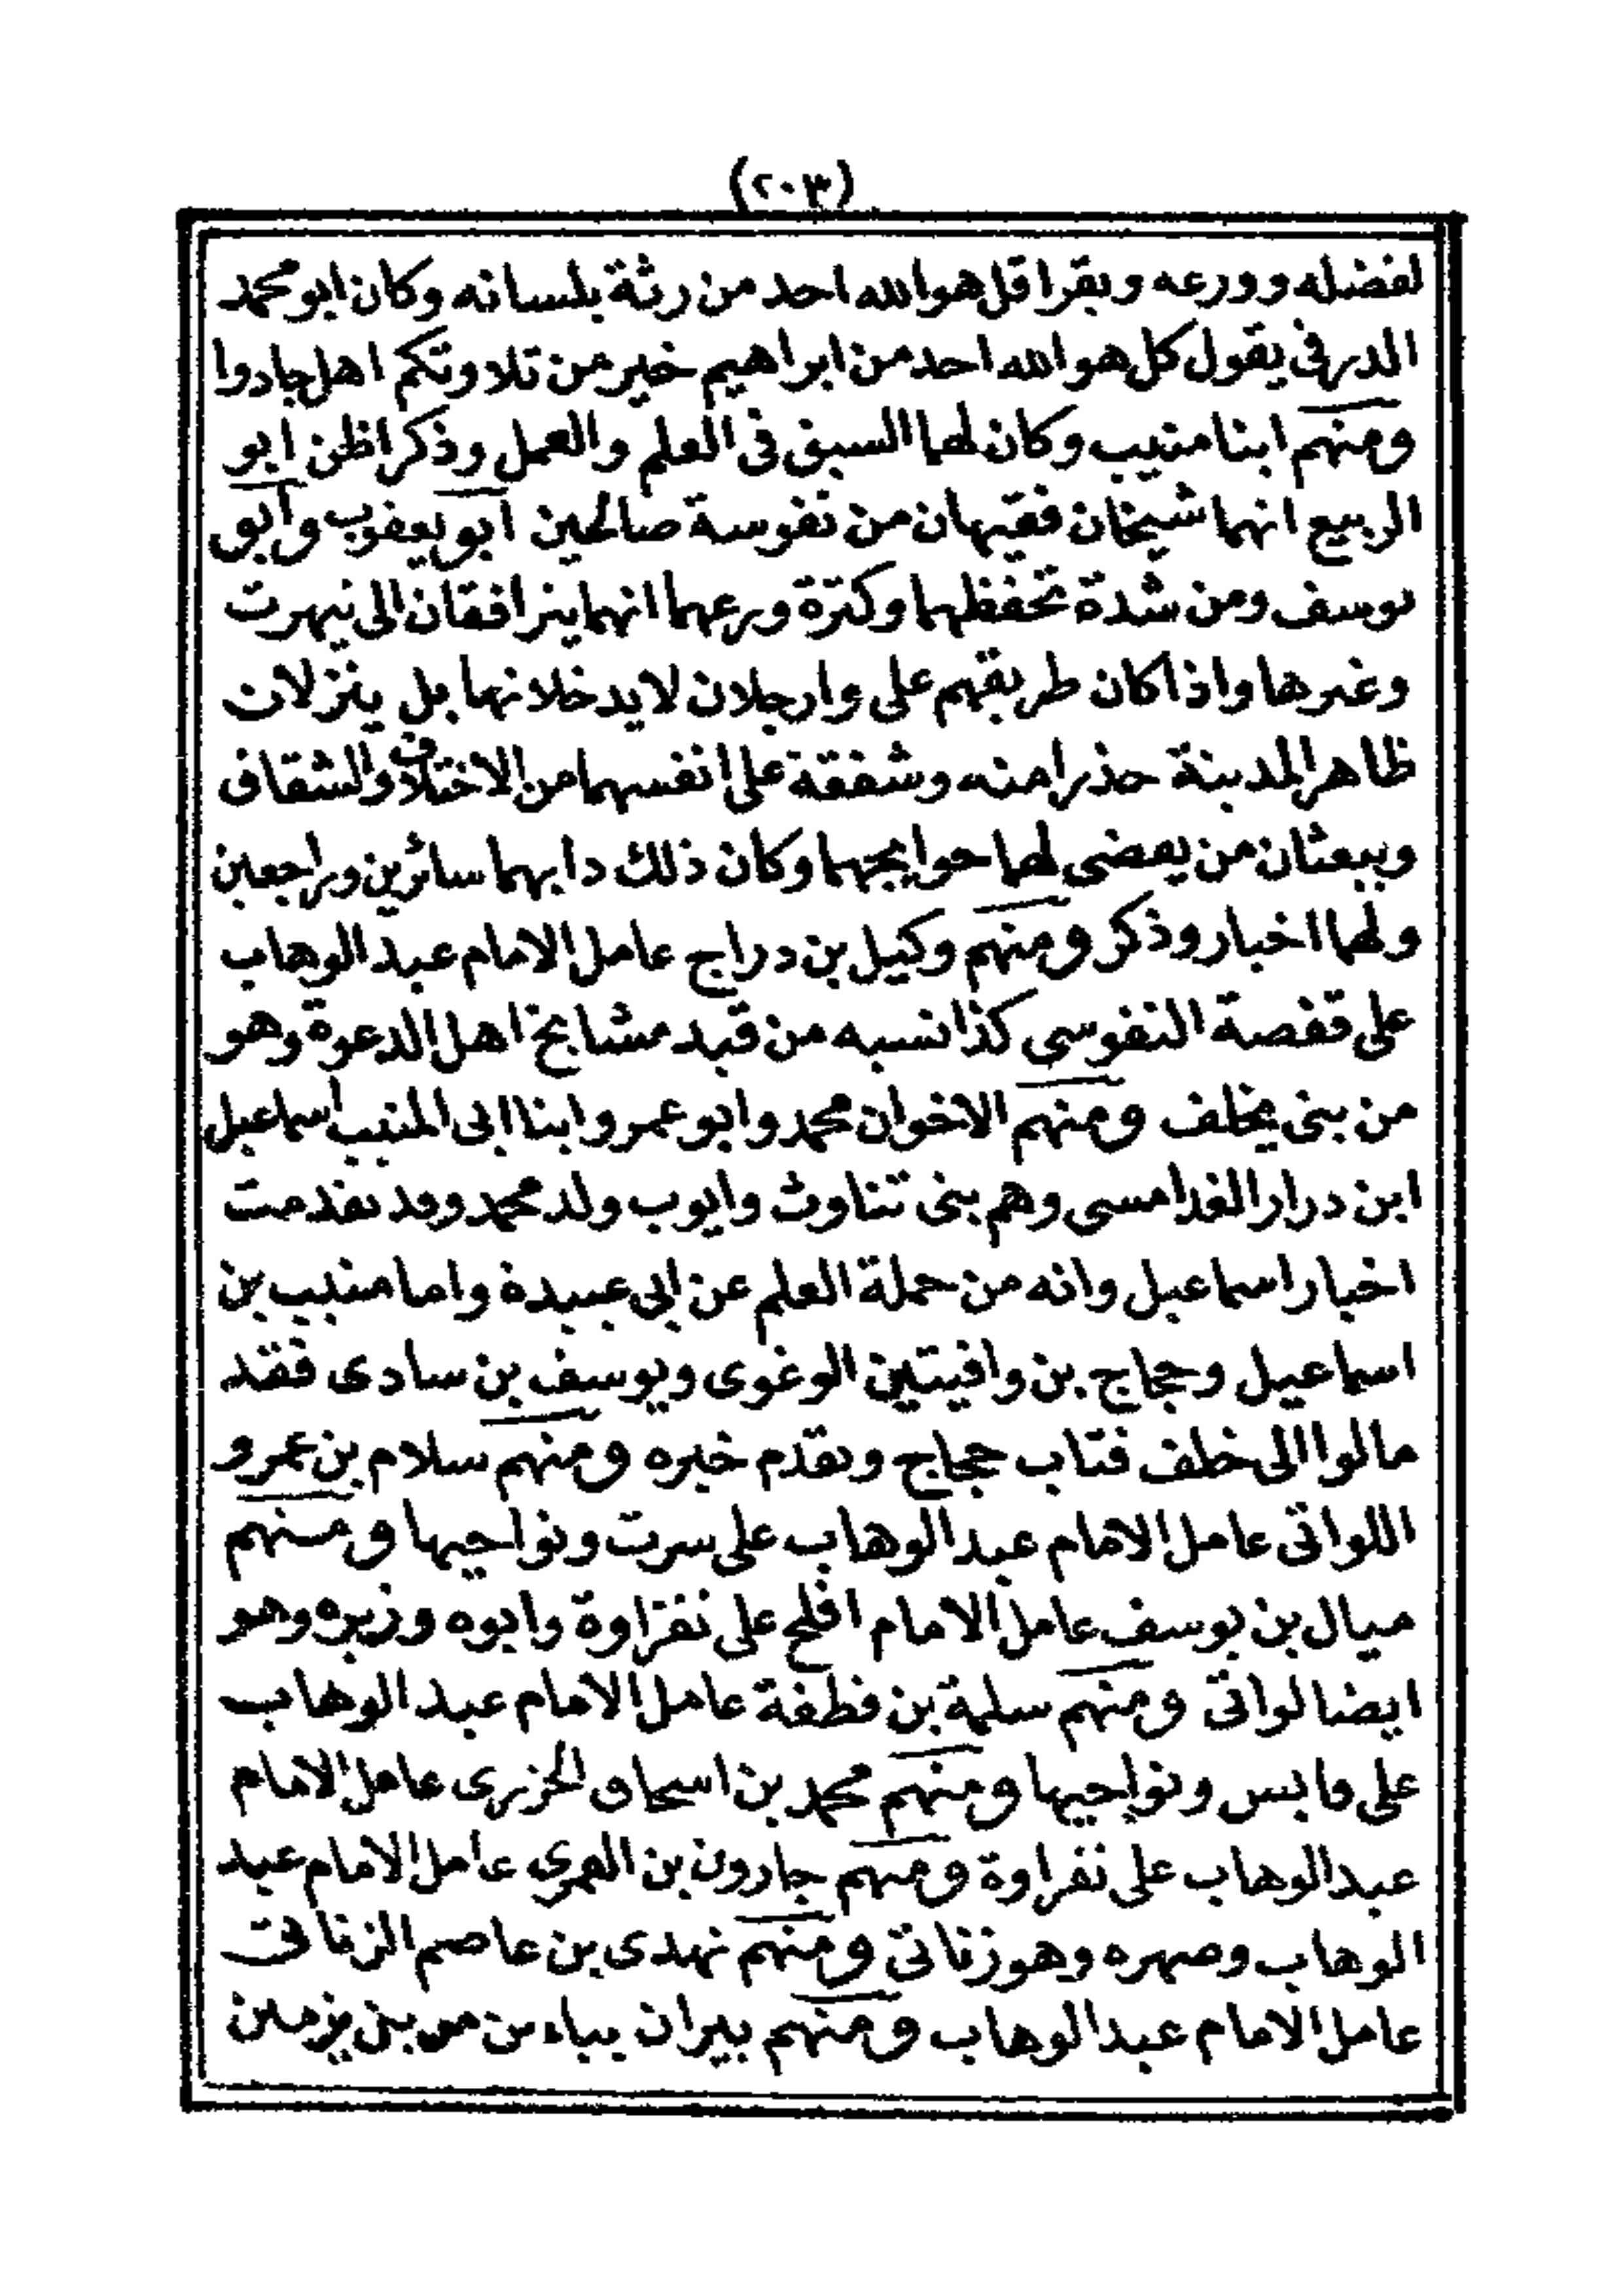 (٢٠٣)
لفضله وورعه ويقرا قل هوالله احد من رثة بلسانه وكان ابو محمد
الدرفى يقول كل هوالله احد من ابراهيم خير من تلاوتكم اهل جادوا
ومنهم ابنا منيب وكان لهما السبق فى العلم والعمل وذكر اظن ابو
الربيع انهما شيخان فقيهان من نفوسة صالحين ابو يعقوب وابو
يوسف ومن شدة تحفظهما وكثرة ورعهما انهما يترافقان الى تيهرت
وغيرها واذا كان طريقهم على وارجلان لا يدخلانها بل ينزلان
ظاهر المدينة حذرا منه وشفقة على انفسهما من الاختلاف والشقاق
ويبعثان من يقضى لهما حوايجهما وكان ذلك دابهما سائرين وراجعين
ولهما اخبار وذكر ومنهم وكيل بن دراج عامل الامام عبد الوهاب
على قفصة النفوسي كذا نسبه من قيد مشايخ اهل الدعوة وهو
من بنى يخلف ومنهم الاخوان محمد وابو عمرو ابنا ابى المنيب اسماعيل
ابن درار الغدامسى وهم بنى تناوت وايوب ولد محمد وقد تقدمت
اخبار اسماعيل وانه من حملة العلم عن ابى عبيدة واما منيب بن
اسماعيل وحجاج بن وافيتين الوغوى ويوسف بن سادى فقد
مالوا الى خلف فتاب حجاج وتقدم خبره ومنهم سلام بن عمرو
اللواتى عامل الامام عبد الوهاب على سرت ونواحيها ومنهم
ميال بن يوسف عامل الامام افلح على نفزاوة وابوه وزيره وهو
ايضا لواتى ومنهم سلمة بن قطفة عامل الامام عبد الوهاب
على قابس ونواحيها ومنهم محمد بن اسحاق الخزرى عامل الامام
عبد الوهاب على نفزاوة ومنهم جارون بن القمرى عامل الامام عبد
الوهاب وصهره وهو زناتى ومنهم نهدى بن عاصم الزناتى
عامل الامام عبد الوهاب ومنهم بيران بباء من بنى يزمتن